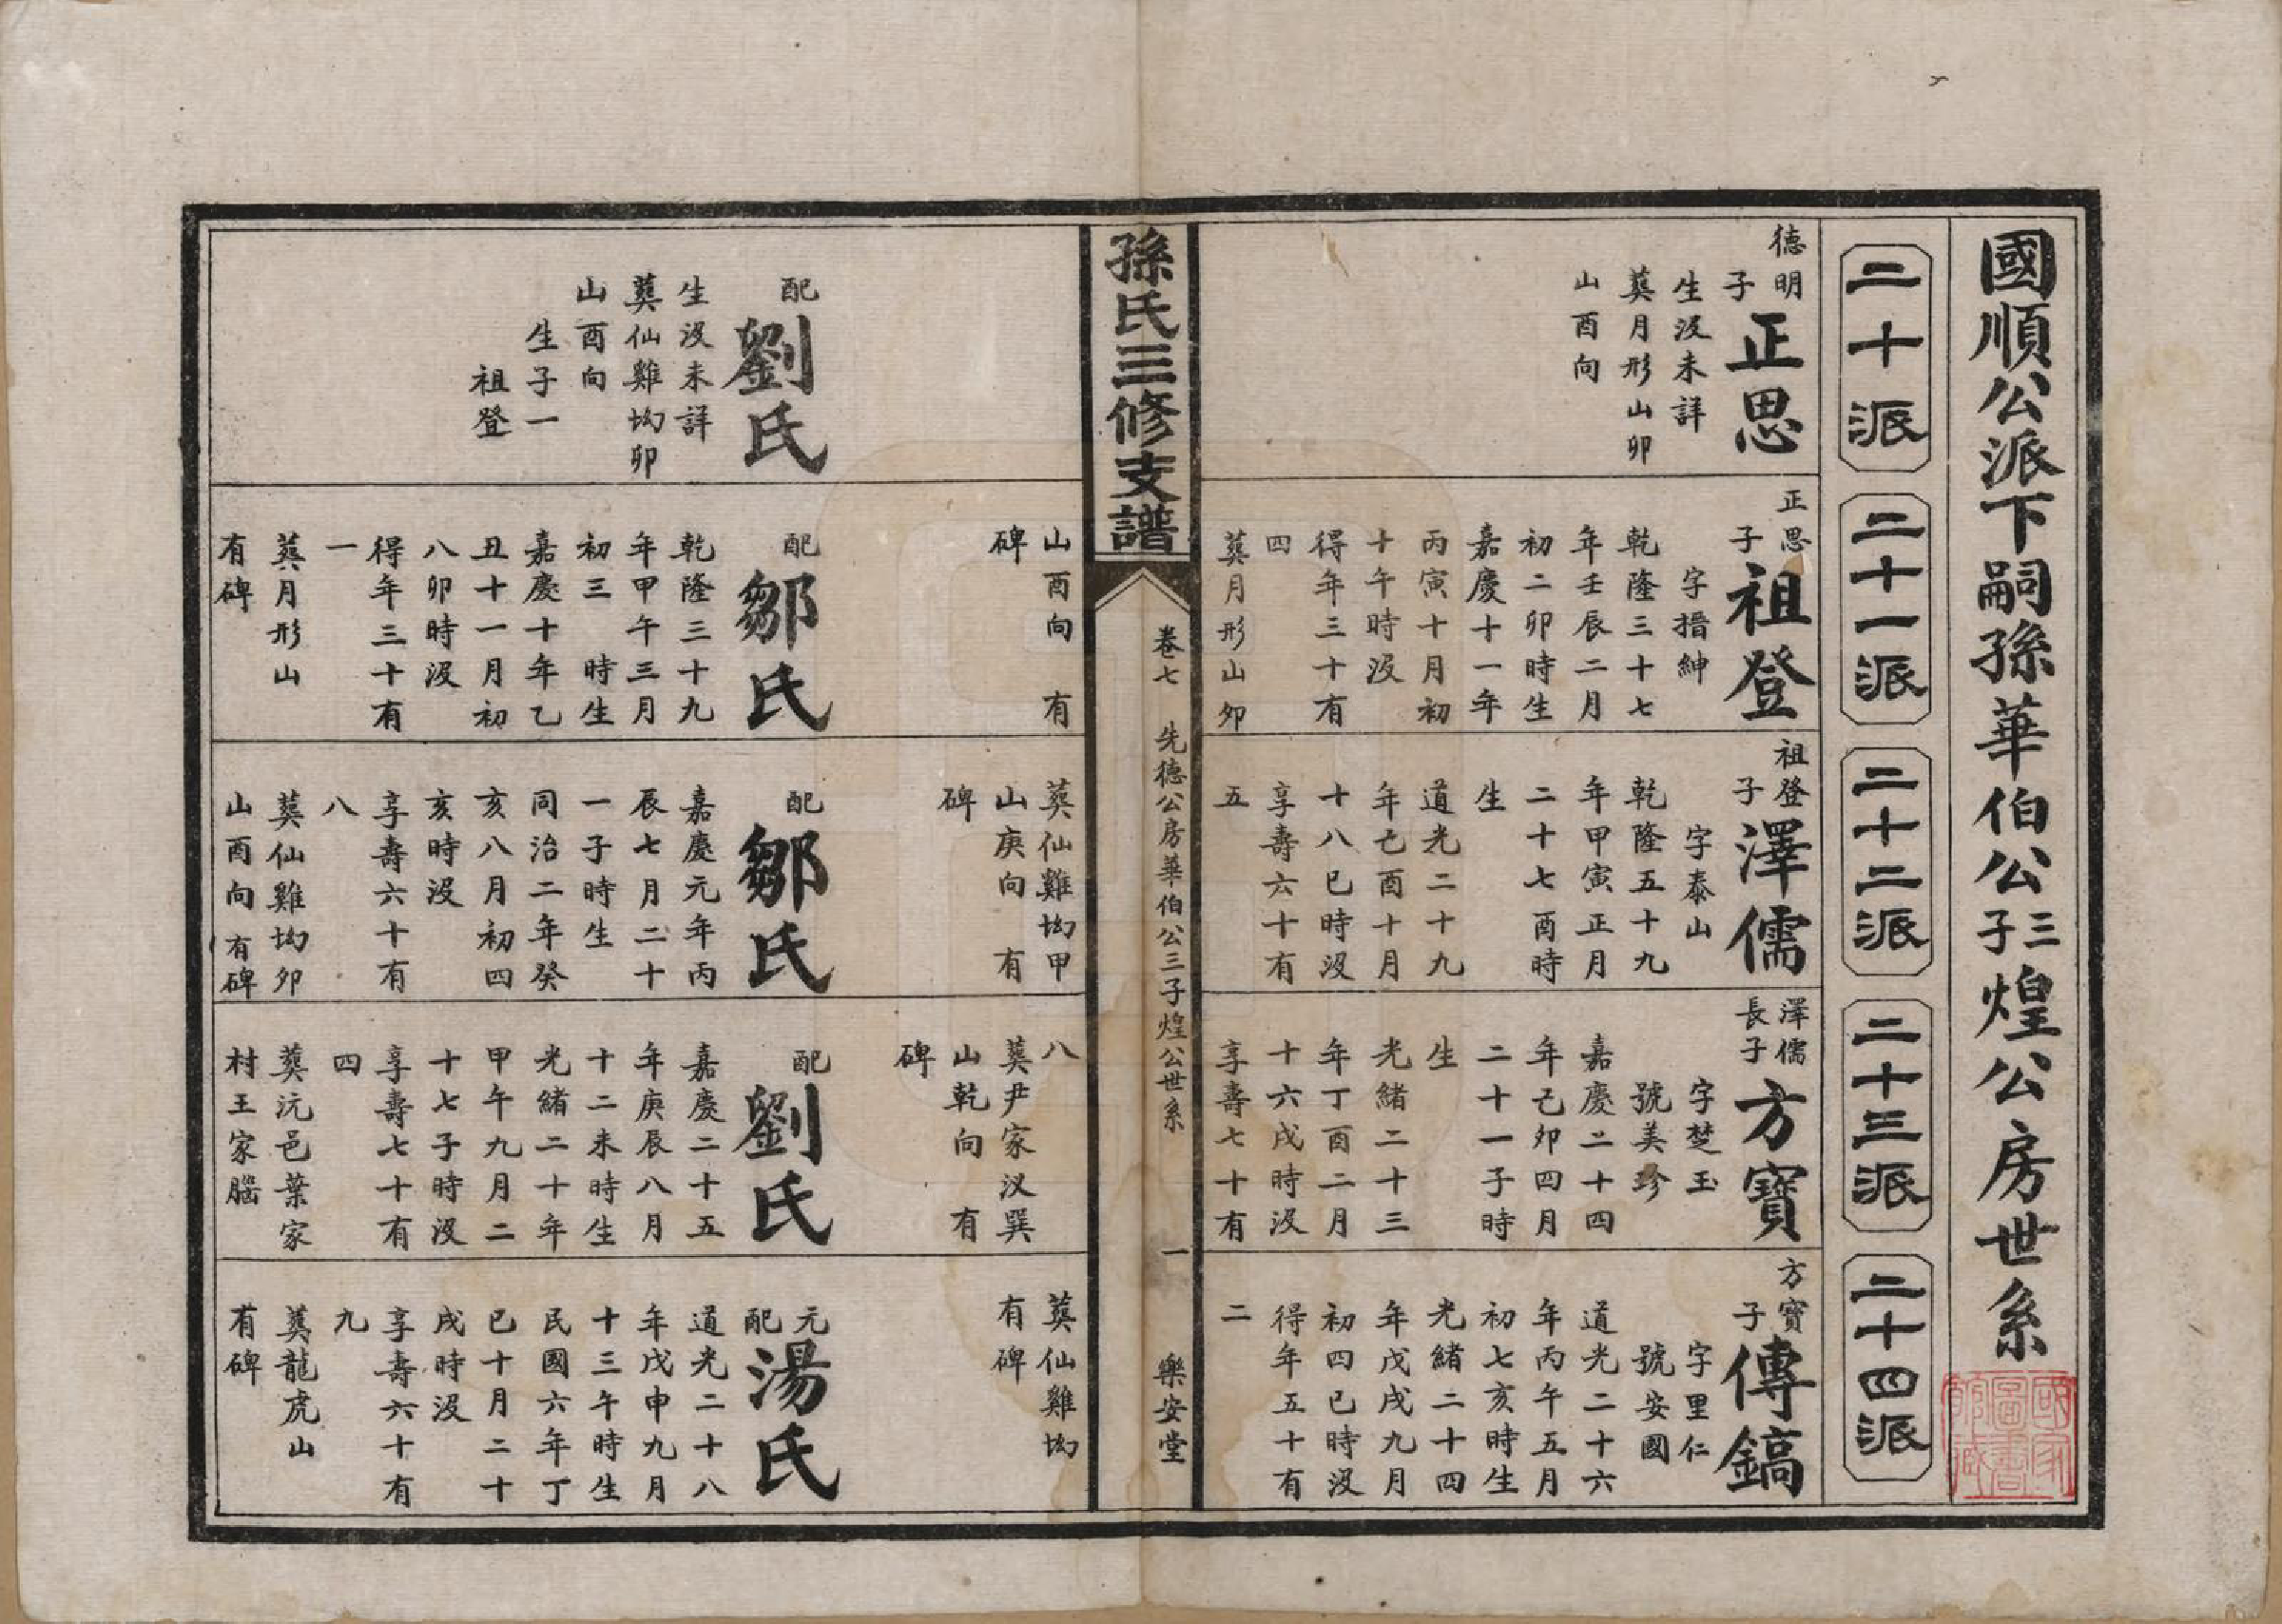 國順公派下嗣孫華伯公三子煌公房世系
二十派
二十一派
二十二派
二十三派
二十四派
德明
子
正思
生沒未詳
葬月形山卯
山酉向
正思
子
祖登
字搢紳
乾隆三十七
年壬辰二月
初二卯時生
嘉慶十一年
丙寅十月初
十午時沒
得年三十有
四
葬月形山卯
山酉向 有
碑
祖登
子
澤儒
字泰山
乾隆五十九
年甲寅正月
二十七酉時
生
道光二十九
年乙酉十月
十八巳時沒
享壽六十有
五
葬仙雞坳甲
山庚向 有
碑
澤儒
長子
方寶
字楚玉
號美珍
嘉慶二十四
年己卯四月
二十一子時
生
光緒二十三
年丁酉二月
十六戌時沒
享壽七十有
八
葬尹家汊巽
山乾向 有
碑
方寶
子
傳鎬
字里仁
號安國
道光二十六
年丙午五月
初七亥時生
光緒二十四
年戊戌九月
初四巳時沒
得年五十有
二
葬仙雞坳
有碑
孫氏三修支譜
卷七 先德公房華伯公三子煌公世系
一
樂安堂
配
劉氏
生沒未詳
葬仙雞坳卯
山酉向
生子一
祖登
配
鄒氏
乾隆三十九
年甲午三月
初三 時生
嘉慶十年乙
丑十一月初
八卯時沒
得年三十有
一
葬月形山
有碑
配
鄒氏
嘉慶元年丙
辰七月二十
一子時生
同治二年癸
亥八月初四
亥時沒
享壽六十有
八
葬仙雞坳卯
山酉向有碑
配
劉氏
嘉慶二十五
年庚辰八月
十二未時生
光緒二十年
甲午九月二
十七子時沒
享壽七十有
四
葬沅邑葉家
村王家腦
元
配
湯氏
道光二十八
年戊申九月
十三午時生
民國六年丁
巳十月二十
戌時沒
享壽六十有
九
葬龍虎山
有碑
國家圖書館藏